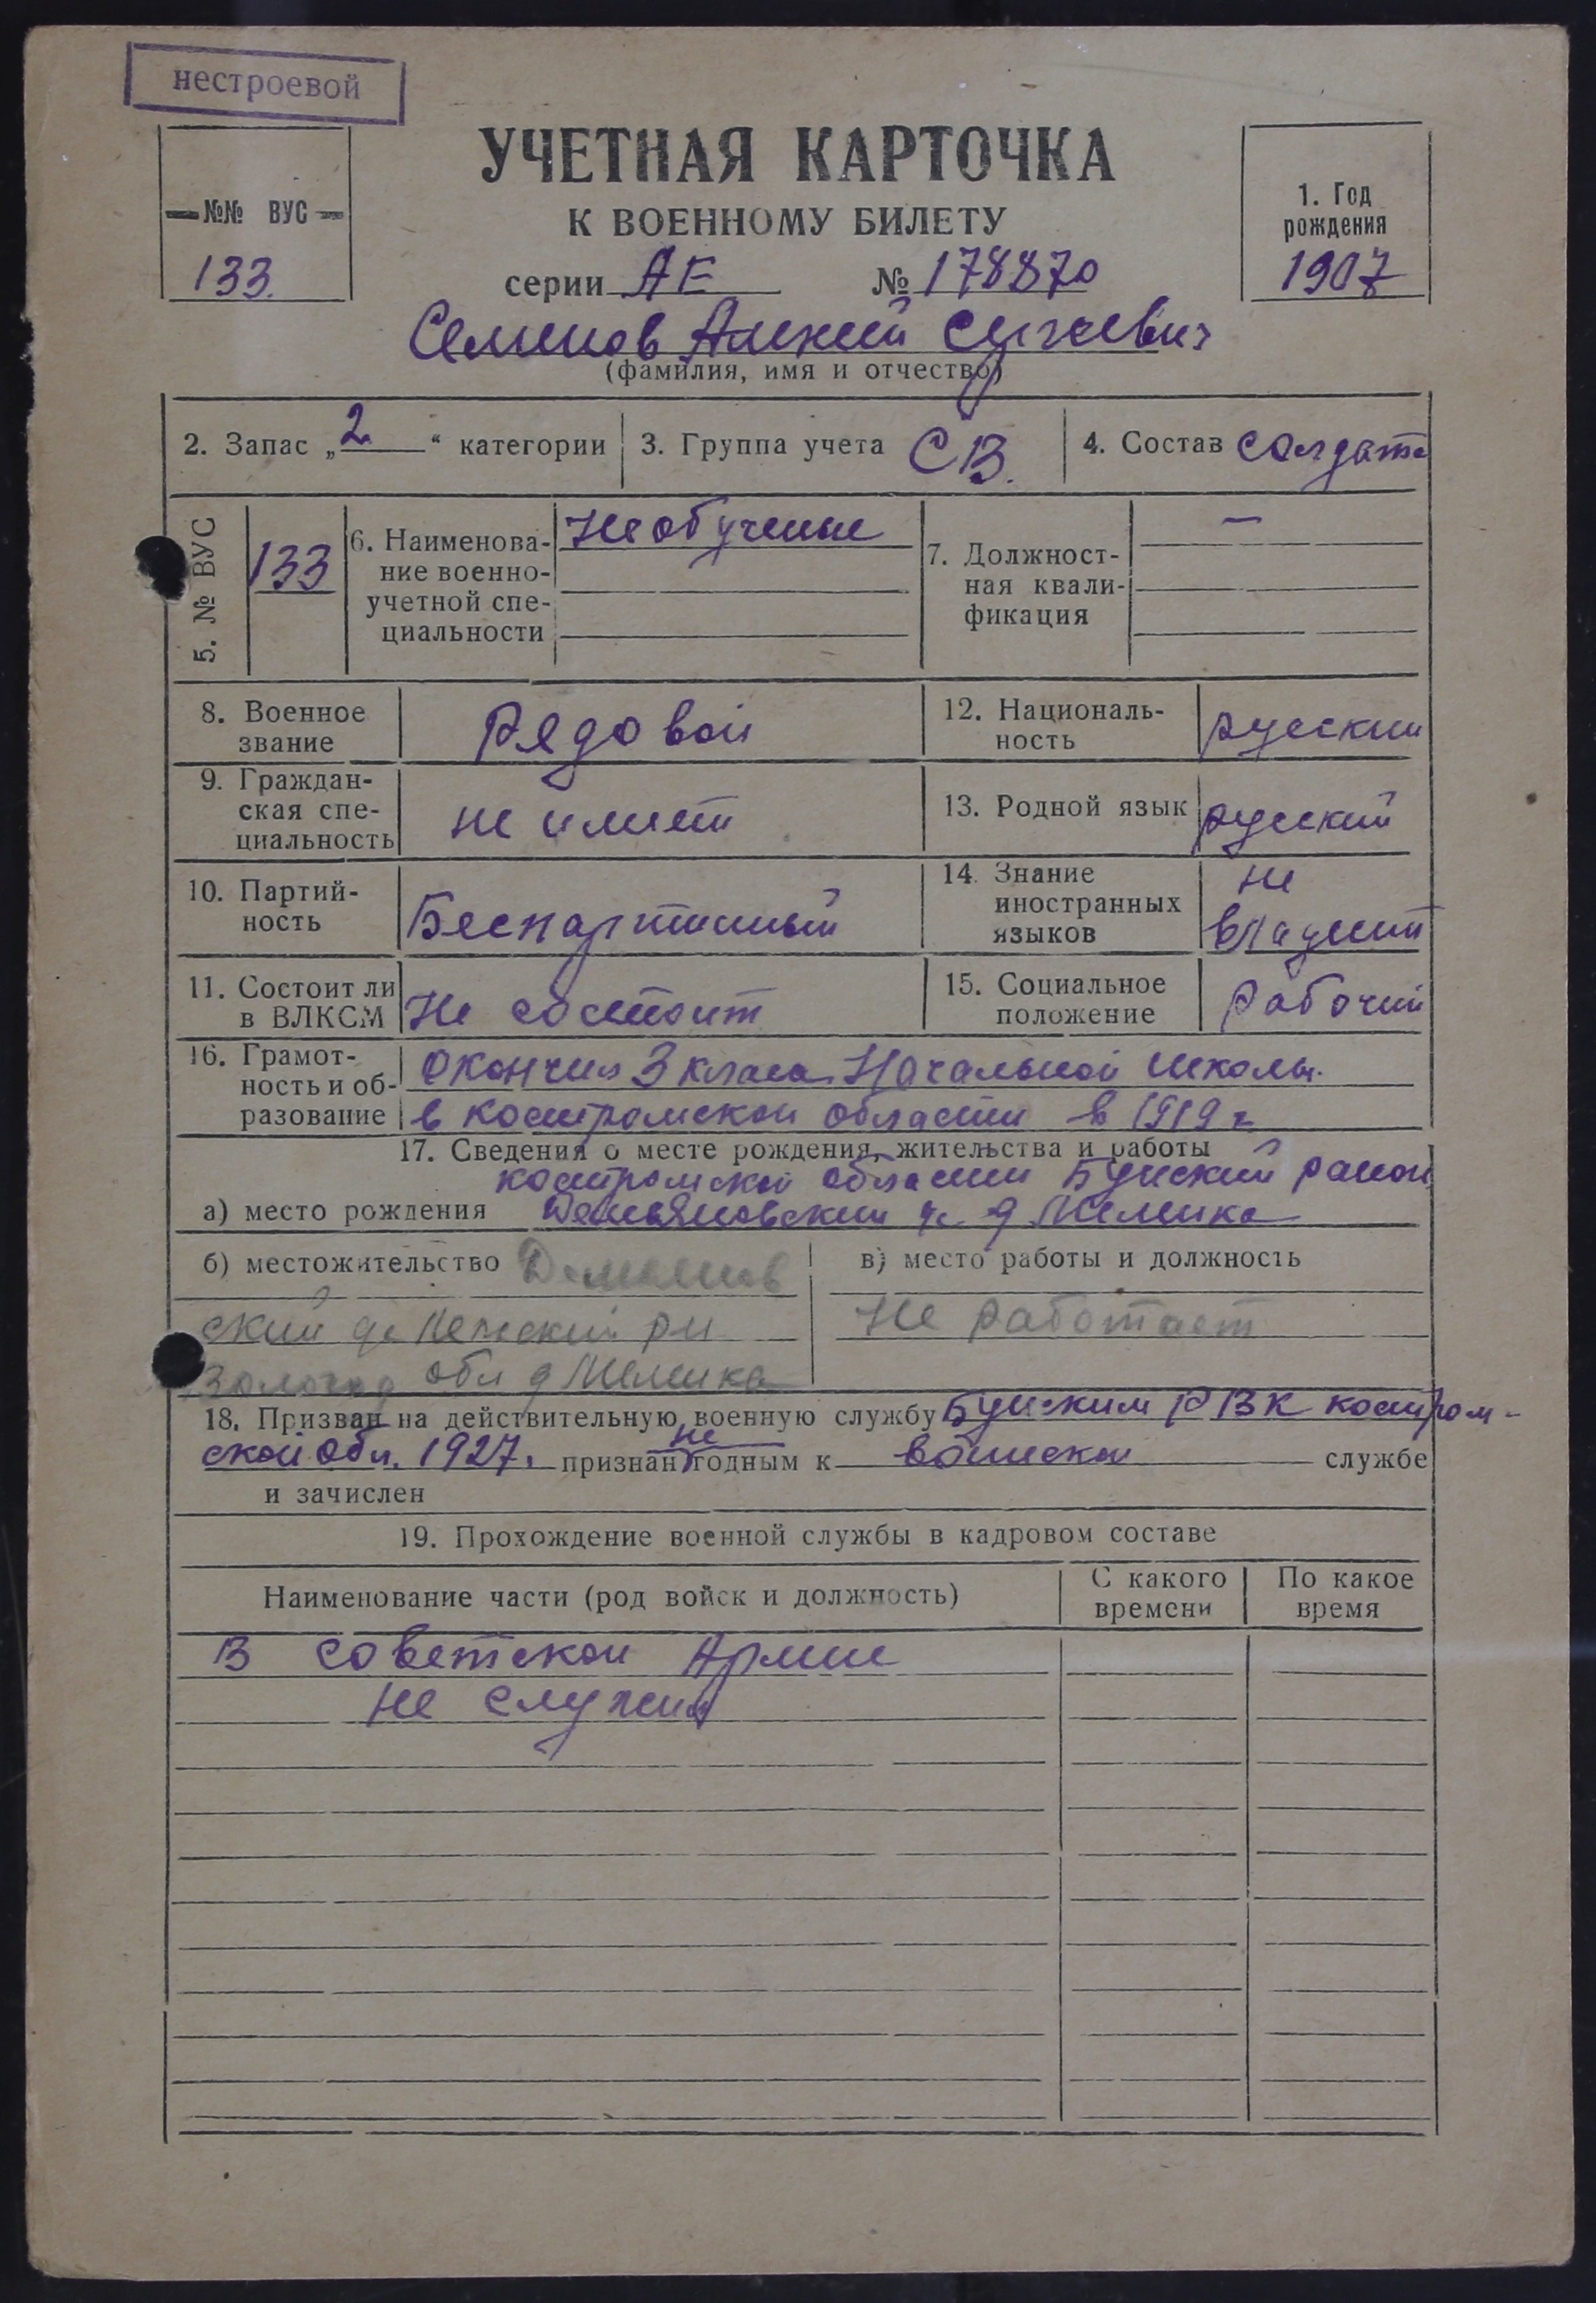 нестроевой
УЧЕТНАЯ КАРТОЧКА
К ВОЕННОМУ БИЛЕТУ
№№ ВУС
133.
серии АЕ № 178870
1. Год
рождения
1907
Семенов Алексей Сергеевич
(фамилия, имя и отчество)
2. Запас „2“ категории
3. Группа учета СВ.
4. Состав солдат
5. № ВУС
133
6. Наименова-
ние военно-
учетной спе-
циальности
Необученые
7. Должност-
ная квали-
фикация
—
8. Военное
звание
Рядовой
12. Националь-
ность
русский
9. Граждан-
ская спе-
циальность
не имеет
13. Родной язык
русский
10. Партий-
ность
Беспартийный
14. Знание
иностранных
языков
не
владеет
11. Состоит ли
в ВЛКСМ
Не состоит
15. Социальное
положение
Рабочий
16. Грамот-
ность и об-
разование
окончил 3 класа Начальной школы.
в костромской области в 1919 г
17. Сведения о месте рождения, жительства и работы
костромской области Буйский район
а) место рождения Демьяновский с д
б) местожительство Демьянов
ский с рн
Вологод обл д
в) место работы и должность
Не работает
18. Призван на действительную военную службу Буйским РВК костром-
ской обл. 1927. признан не годным к воинской службе
и зачислен
19. Прохождение военной службы в кадровом составе
Наименование части (род войск и должность)
С какого
времени
По какое
время
В советской Армии
не служил